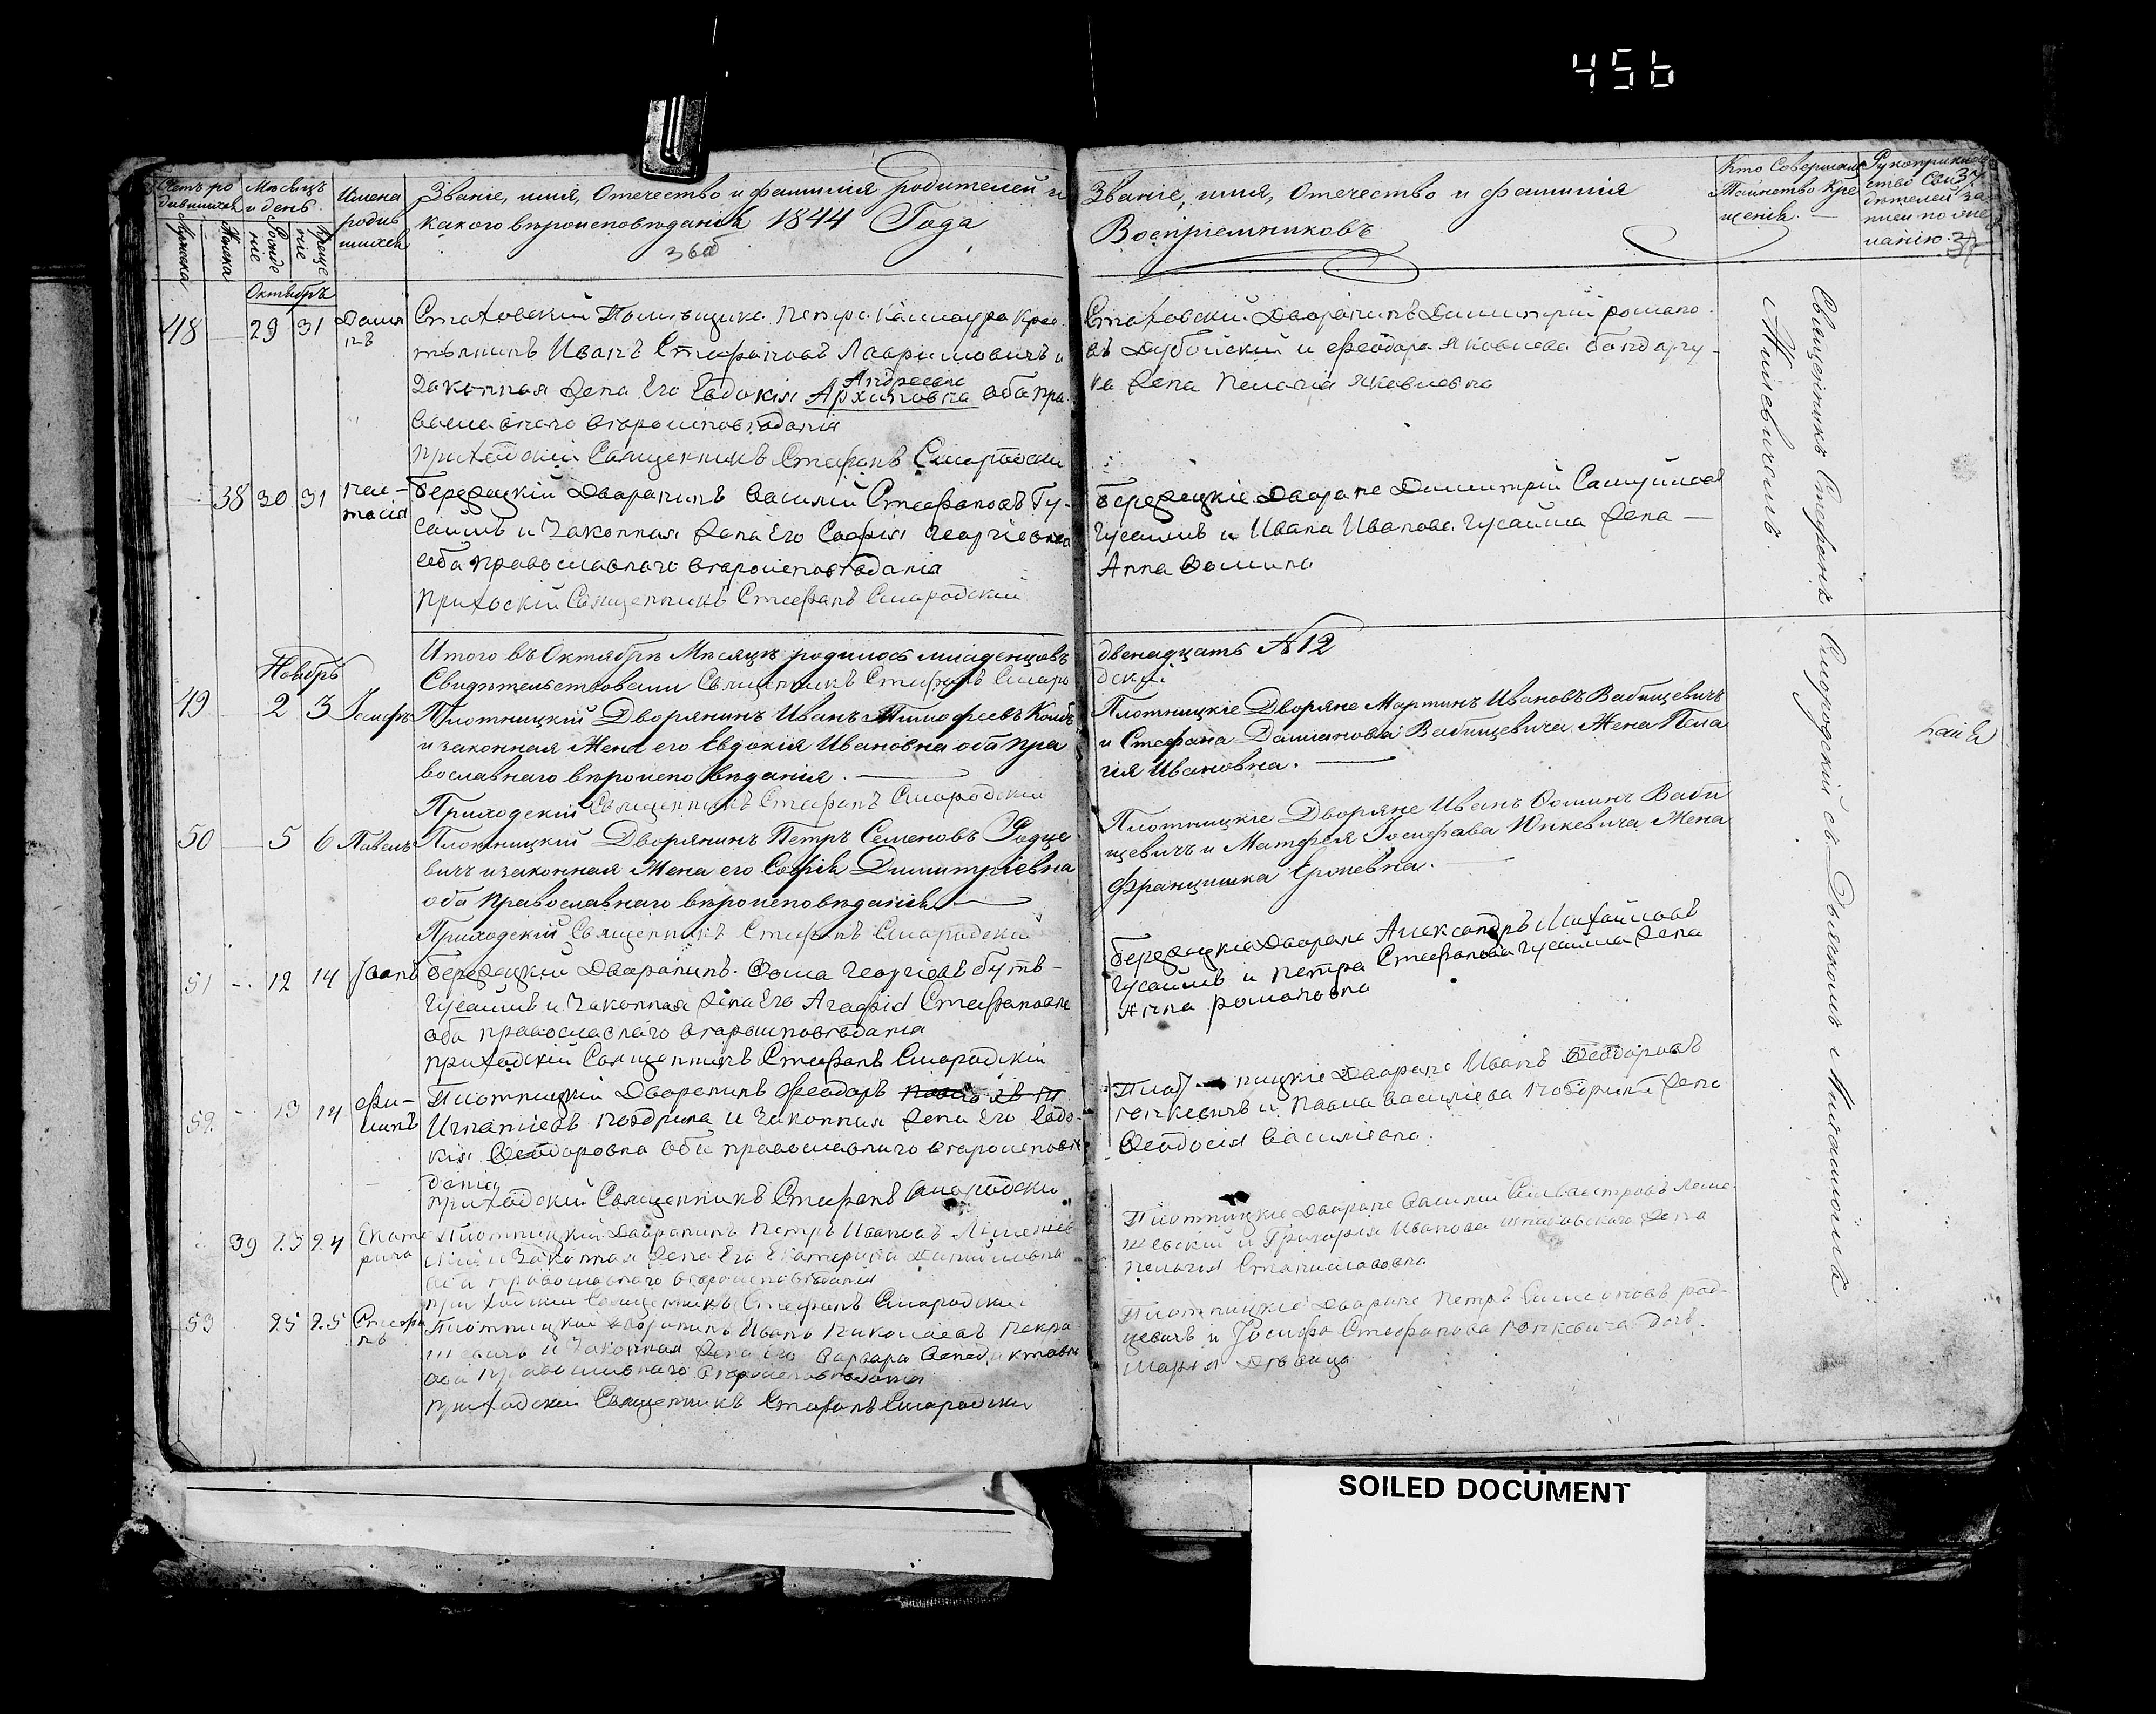 456
Счетъ ро
дившихся
Мѣсяцъ
и день
Имена
родив
шихся
Званіе, имя, Отечество и фамилія родителей и
какого вѣроисповѣданія 1844 Года
36об
Званіе, имя, Отечество и фамилія
Воспріемниковъ
Кто Совершилъ
Таинство Кре
щенія.
Рукоприклад
ство Свидѣ
дѣтелей за
писи по же
ланію.
37
Октябрь
48 29 31 Даміа
нъ
Стаховскій Помѣщика Петра Каш Крес
тьянинъ Иванъ Стефановъ Лавримовичъ и
Законная Жена Его Евдокія Архиповна оба пра
Андреевна
вославного вѣроисповѣданія
Приходскій Священникъ Стефанъ Смородскій
Стаховскій Дворянинъ Димитрій Романо
въ Дубойскій и Феодора Яковлева бондару
ка Жена Пелагія Яковлевна
38 30 31
тасія
Бережецкій Дворянинъ Василій Стефановъ Гу-
саимъ и Законная Жена Его Софія Георгіевна
оба православнаго вѣроисповѣданія
Прихоскій Священникъ Стефанъ Смородскій
Бережецкіе Дворяне Димитрій Самуиловъ
Гусаимъ и Ивана Иванова Гусаима Жена
Анна Фомина
Итого въ Октябрѣ Мѣсяцѣ родилось младенцовъ
двенадцать №12
Свидѣтельствовали Священникъ Стефанъ Сморо
дскій
Ноябрь
49 2 3 Іосифъ
Плотницкій Дворянинъ Иванъ Тимофеевъ Колбъ
и законная Жена его Евдокія Ивановна оба пра
вославнаго вѣроисповѣданія.
Приходскій Священникъ Стефанъ Смородскій
Плотницкіе Дворяне Мартинъ Ивановъ Вабищевичъ
и Стефана Даміанова Вабищевича Жена Пела
гія Ивановна.
50 5 6 Павелъ
Плотницкій Дворянинъ Петръ Семеновъ Родце
вичъ и законная Жена его Софія Димитріевна
оба Православнаго вѣроисповѣданія
Приходскій Священникъ Стефанъ Смородскій
Плотницкіе Дворяне Иванъ Фоминъ Ваби
щевичъ и Матфея Іосифава Юнкевича Жена
Францишка
51 12 14 Іоанъ
Бережецкій Дворянинъ Фома Георгіевъ Бутв-
Гусаимъ и Законная Жена Его Агафія Стефановна
оба православнаго вѣроисповѣданія
Приходскій Священникъ Стефанъ Смородскій
Бережецкіе Дворяне Александръ Михайловъ
Гусаимъ и Петра Стефанова Гусаима Жена
Анна Романовна
52 13 14 Фи-
липъ
Плотницкій Дворянинъ Феодоръ
Игнатіевъ Ноздрина и Законная Жена Его Евдо-
кія Феодоровна оба православнаго вѣроисповѣ
данія
Приходскій Священникъ Стефанъ Смородскій
Плот ницкіе Дворяне Иванъ Феодоровъ
Юнкевичъ и Павла Василіева Ноздрина Жена
Феодосія Василіевна.
39 23 24 Екате
рина
Плотницкій Дворянинъ Петръ Ивановъ Лемешев
скій и Законная Жена Его Екатерина Даніиловна
оба православнаго вѣроисповѣданія
Приходскій Священникъ Стефанъ Смородскій
Плотницкіе Дворяне Василій Силвестровъ Леме
шевскій и Григорія Иванова Жена
Пелагія Станиславовна
53 25 25 Стефа
нъ
Плотницкій Дворянинъ Иванъ Николаевъ Некра
шевичъ и Законная Жена Его Варвара Венедиктовна
оба православнаго вѣроисповѣданія
Приходскій Священникъ Стефанъ Смородскій
Плотницкіе Дворяне Петръ Симеоновъ Род-
цевичъ и Іосифа Стефанова Юнкевича Дочь
Марія Дѣвица
Священникъ Стефанъ Смородскій съ Дьякономъ Михаиломъ
Жилевичемъ.
SOILED DOCUMENT